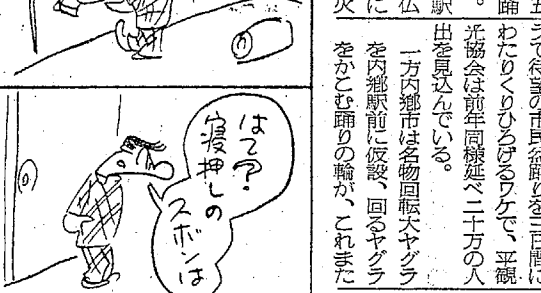 うで待望の市民盆踊りを三日間に
わたりくりひろげるワケで、平観
光協会は前年同様延べ二十万の人
出を見込んでいる。
一方内郷市は名物回転大ヤグラ
を内郷駅前に仮設、回るヤグラ
をかこむ踊りの輪が、これまた
はて?
寝押しの
ズボンは